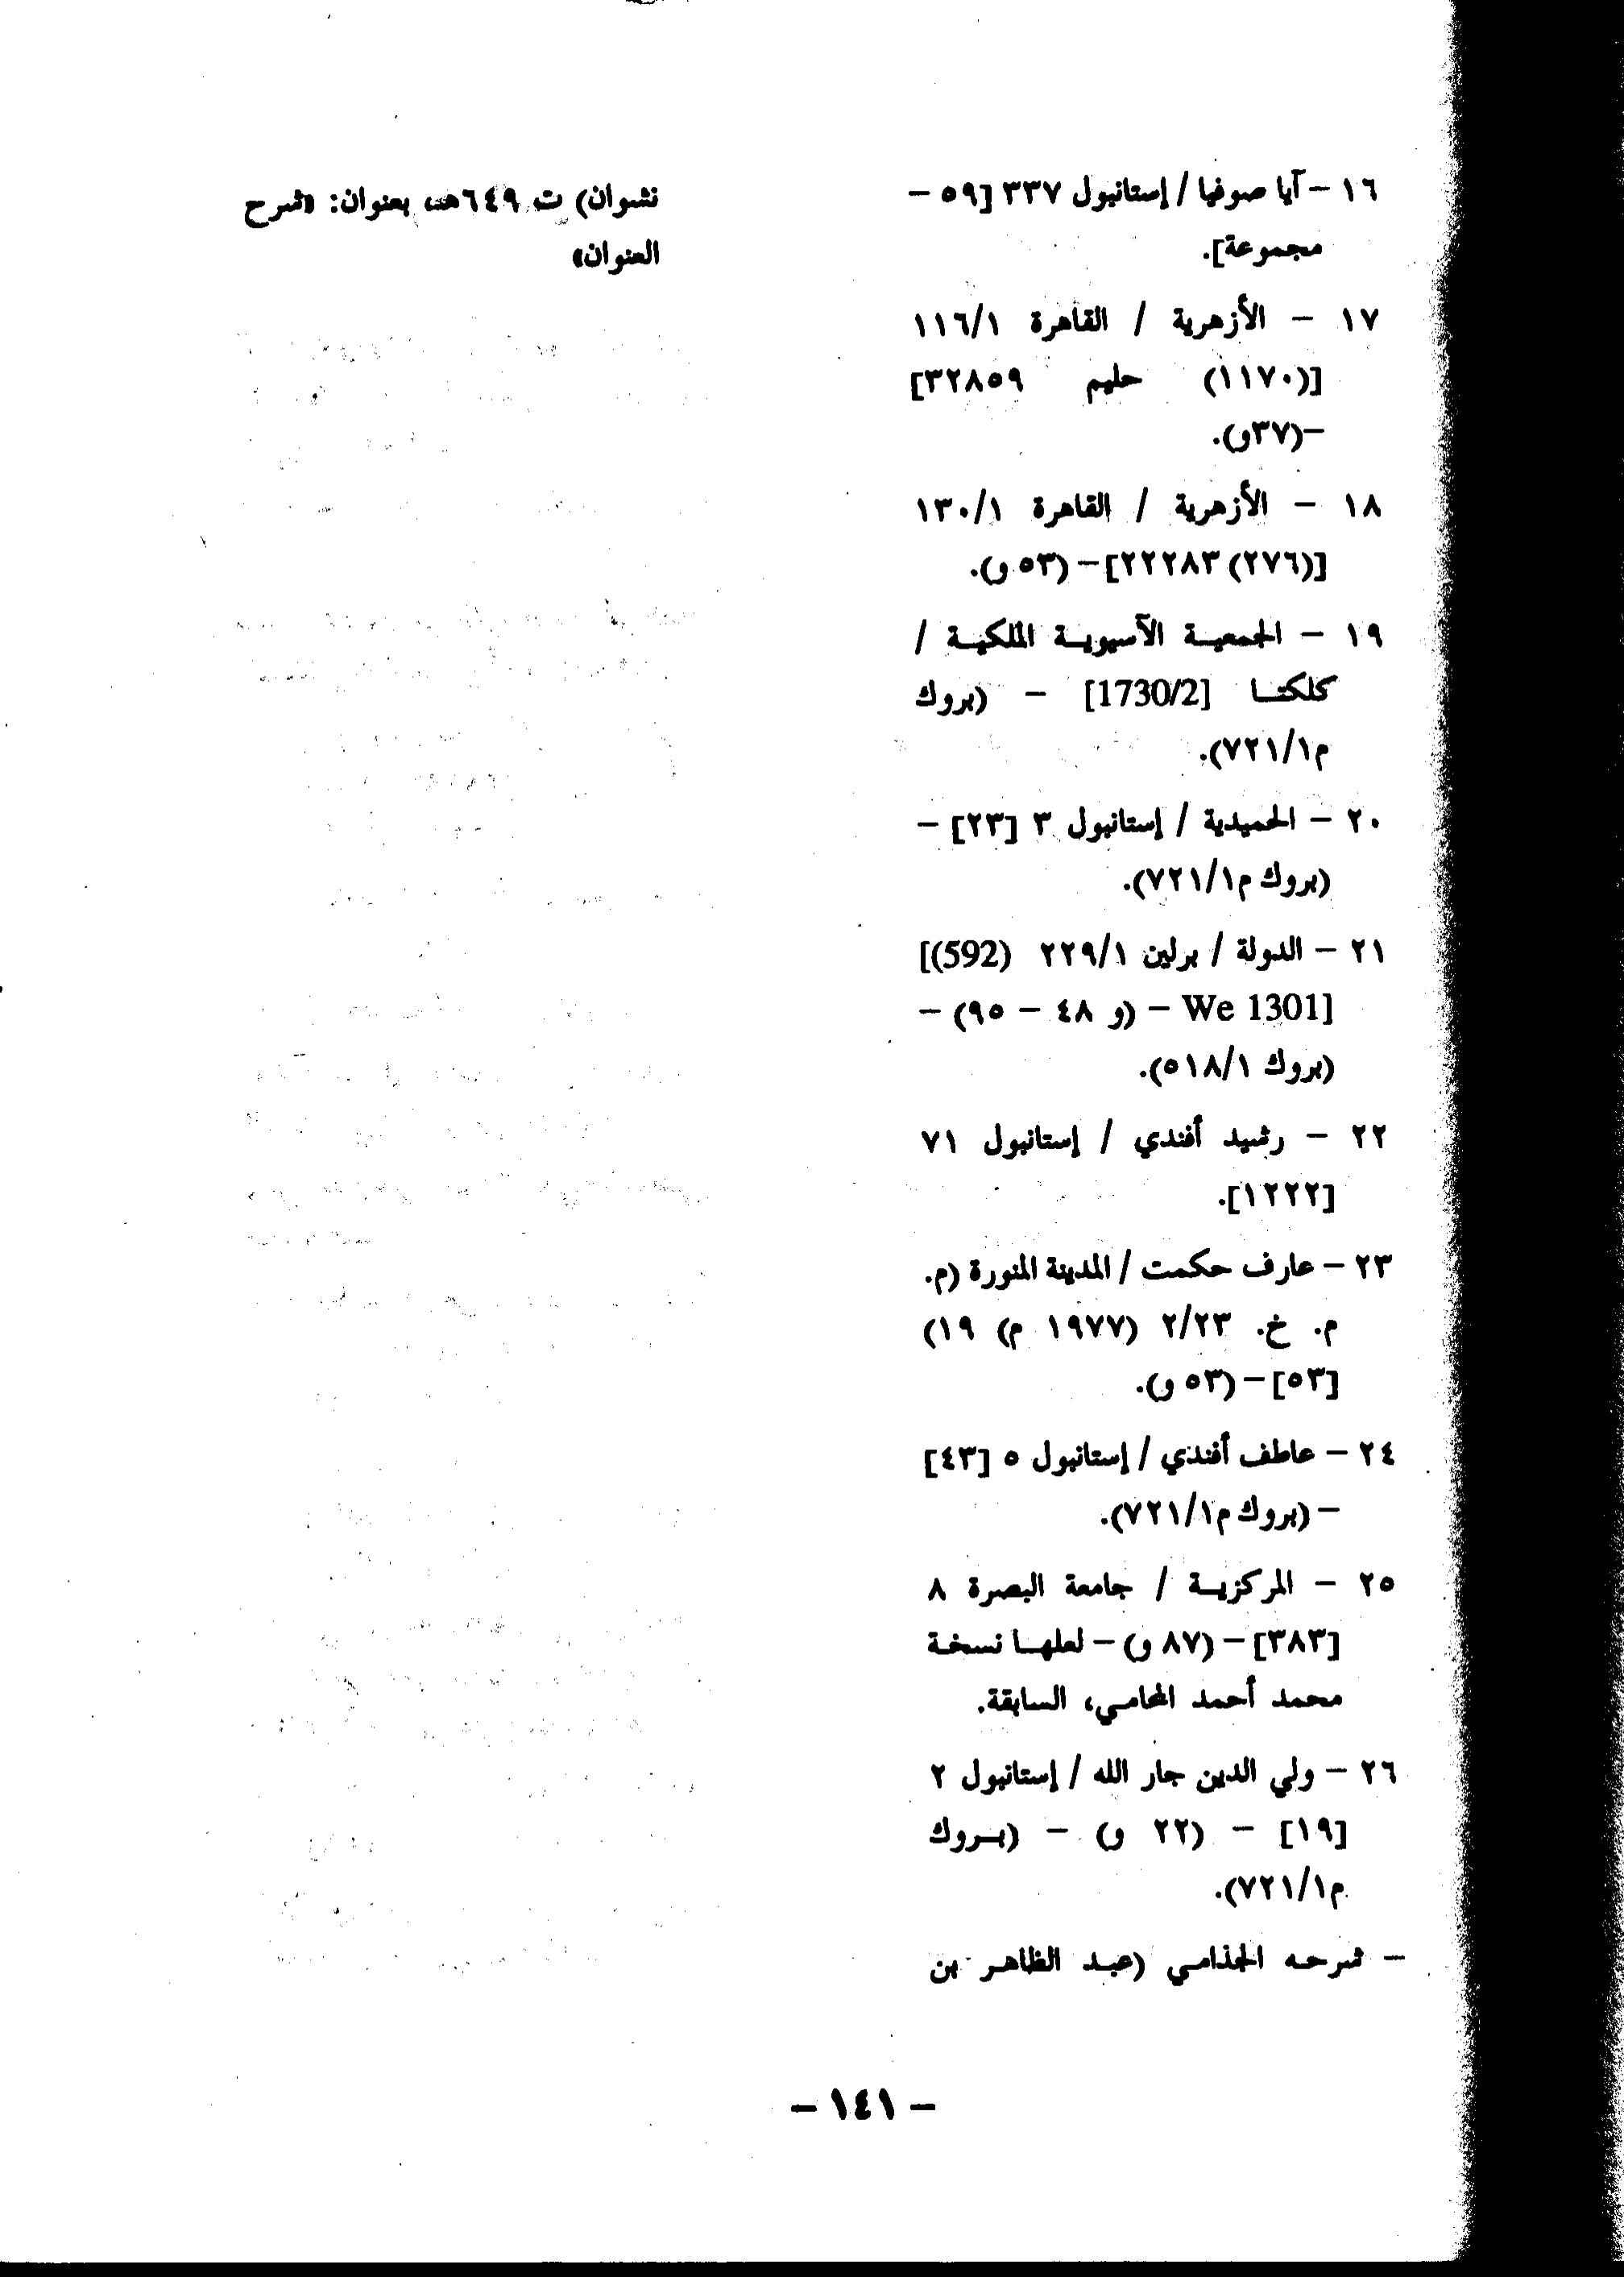 ١٦ – آيا صوفيا / إستانبول ٣٣٧ [٥٩ –
مجموعة].
١٧ – الأزهرية / القاهرة ١١٦/١
[(١١٧٠) حليم ٣٢٨٥٩]
–(٣٧و).
١٨ – الأزهرية / القاهرة ١٣٠/١
[(٢٧٦) ٢٢٢٨٣] – (٥٣ و).
١٩ – الجمعيـة الآسيويـة الملكيـة /
كلكتـا [1730/2] – (بروك
م٧٢١/١).
٢٠ – الحميدية / إستانبول ٣ [٢٣] –
(بروك م٧٢١/١).
٢١ – الدولة / برلين ٢٢٩/١ (592)]
[We 1301 – (و ٤٨ – ٩٥) –
(بروك ٥١٨/١).
٢٢ – رشيد أفندي / إستانبول ٧١
[١٢٢٢].
٢٣ – عارف حكمت / المدينة المنورة (م.
م. خ. ٢/٢٣ (١٩٧٧ م) ١٩)
[٥٣] – (٥٣ و).
٢٤ – عاطف أفندي / إستانبول ٥ [٤٣]
– (بروك م٧٢١/١).
٢٥ – المركزيـة / جامعة البصرة ٨
[٣٨٣] – (٨٧ و) – لعلهـا نسخة
محمد أحمد المحامي، السابقة.
٢٦ – ولي الدين جار الله / إستانبول ٢
[١٩] – (٢٢ و) – (بـروك
م٧٢١/١).
– شرحه الجذامي (عبد الظاهر بن
نشوان) ت ٦٤٩هـ، بعنوان: «شرح
العنوان»
– ١٤١ –